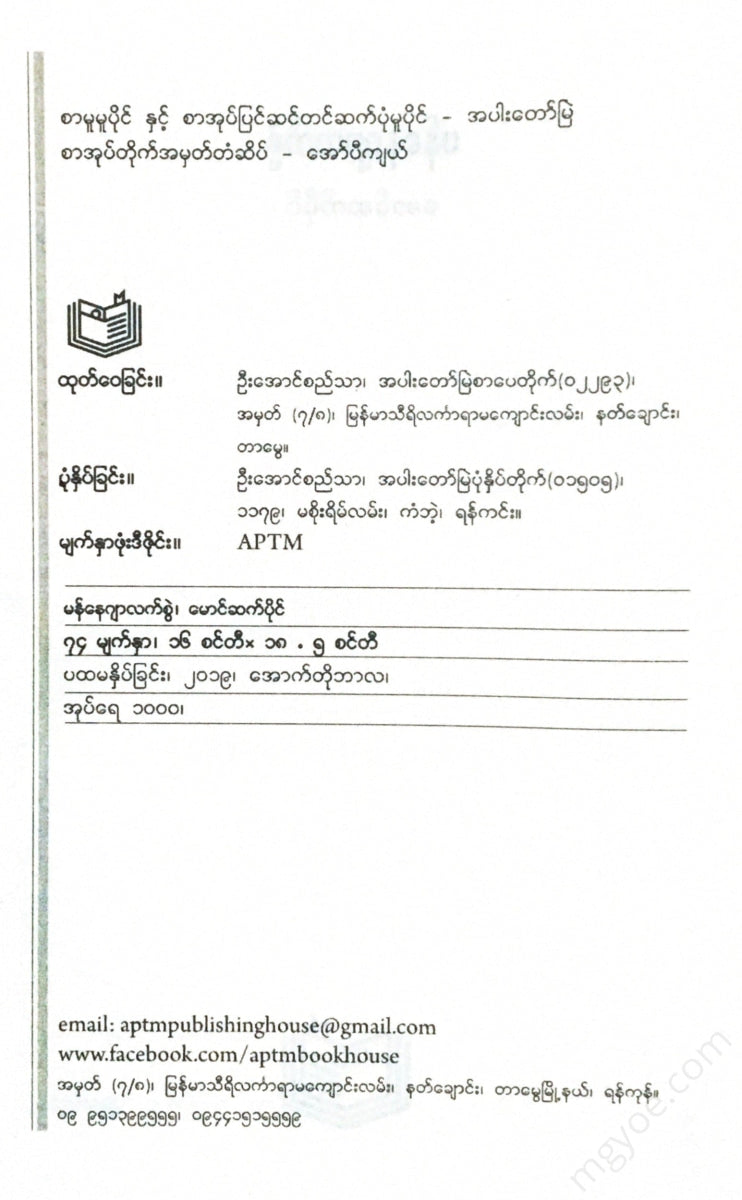 စာမူမူပိုင် နှင့် စာအုပ်ပြင်ဆင်တင်ဆက်ပုံမူပိုင် - အပါးတော်မြဲ
စာအုပ်တိုက်အမှတ်တံဆိပ် - အော်ပီကျယ်
ထုတ်ဝေခြင်း။ ဦးအောင်စည်သာ၊ အပါးတော်မြဲစာပေတိုက်(၀၂၂၉၃)၊
အမှတ် (၇/၈)၊ မြန်မာသီရိလင်္ကာရာမကျောင်းလမ်း၊ နတ်ချောင်း၊
တာမွေ။
ပုံနှိပ်ခြင်း။ ဦးအောင်စည်သာ၊ အပါးတော်မြဲပုံနှိပ်တိုက်(၀၁၅၀၅)၊
၁၁၇၉၊ မစိုးရိမ်လမ်း၊ ကံဘဲ့၊ ရန်ကင်း။
မျက်နှာဖုံးဒီဇိုင်း။ APTM
မန်နေဂျာလက်စွဲ၊ မောင်ဆက်ပိုင်
၇၄ မျက်နှာ၊ ၁၆ စင်တီ× ၁၈ . ၅ စင်တီ
ပထမနှိပ်ခြင်း၊ ၂၀၁၉၊ အောက်တိုဘာလ၊
အုပ်ရေ ၁၀၀၀၊
email: aptmpublishinghouse@gmail.com
www.facebook.com/aptmbookhouse
အမှတ် (၇/၈)၊ မြန်မာသီရိလင်္ကာရာမကျောင်းလမ်း၊ နတ်ချောင်း၊ တာမွေမြို့နယ်၊ ရန်ကုန်။
၀၉ ၉၅၁၃၉၉၅၅၅၊ ၀၉၄၄၁၅၁၅၅၅၉
mgyoe.com